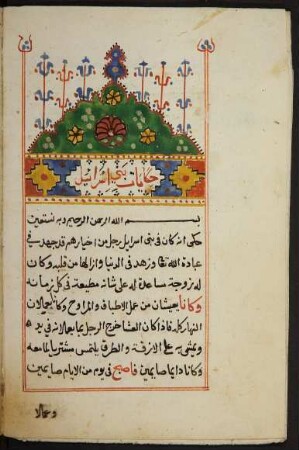 حكايات بني اسرائيل
بسم الله الرحمن الرحيم وبه نستعين
حكى انه كان في بنى اسريل رجل من اخيارهم قد جهد في
عبادة الله تعا وزهد في الدنيا وازالها من قلبه وكان
له زوجة ساعدة له على شانه مطيعة في كل زمانه
وكانا يعيشان من عمل الاطباق والمراوح وكانا يعملان
النهار كله فاذا كان العشا خرج الرجل بما يعملانه في يده
ويمشي به على الازقة والطرق يلتمس مشتريا
وكانا دايما صايمين فاصبح في يوم من الايام صايمين
وعملا